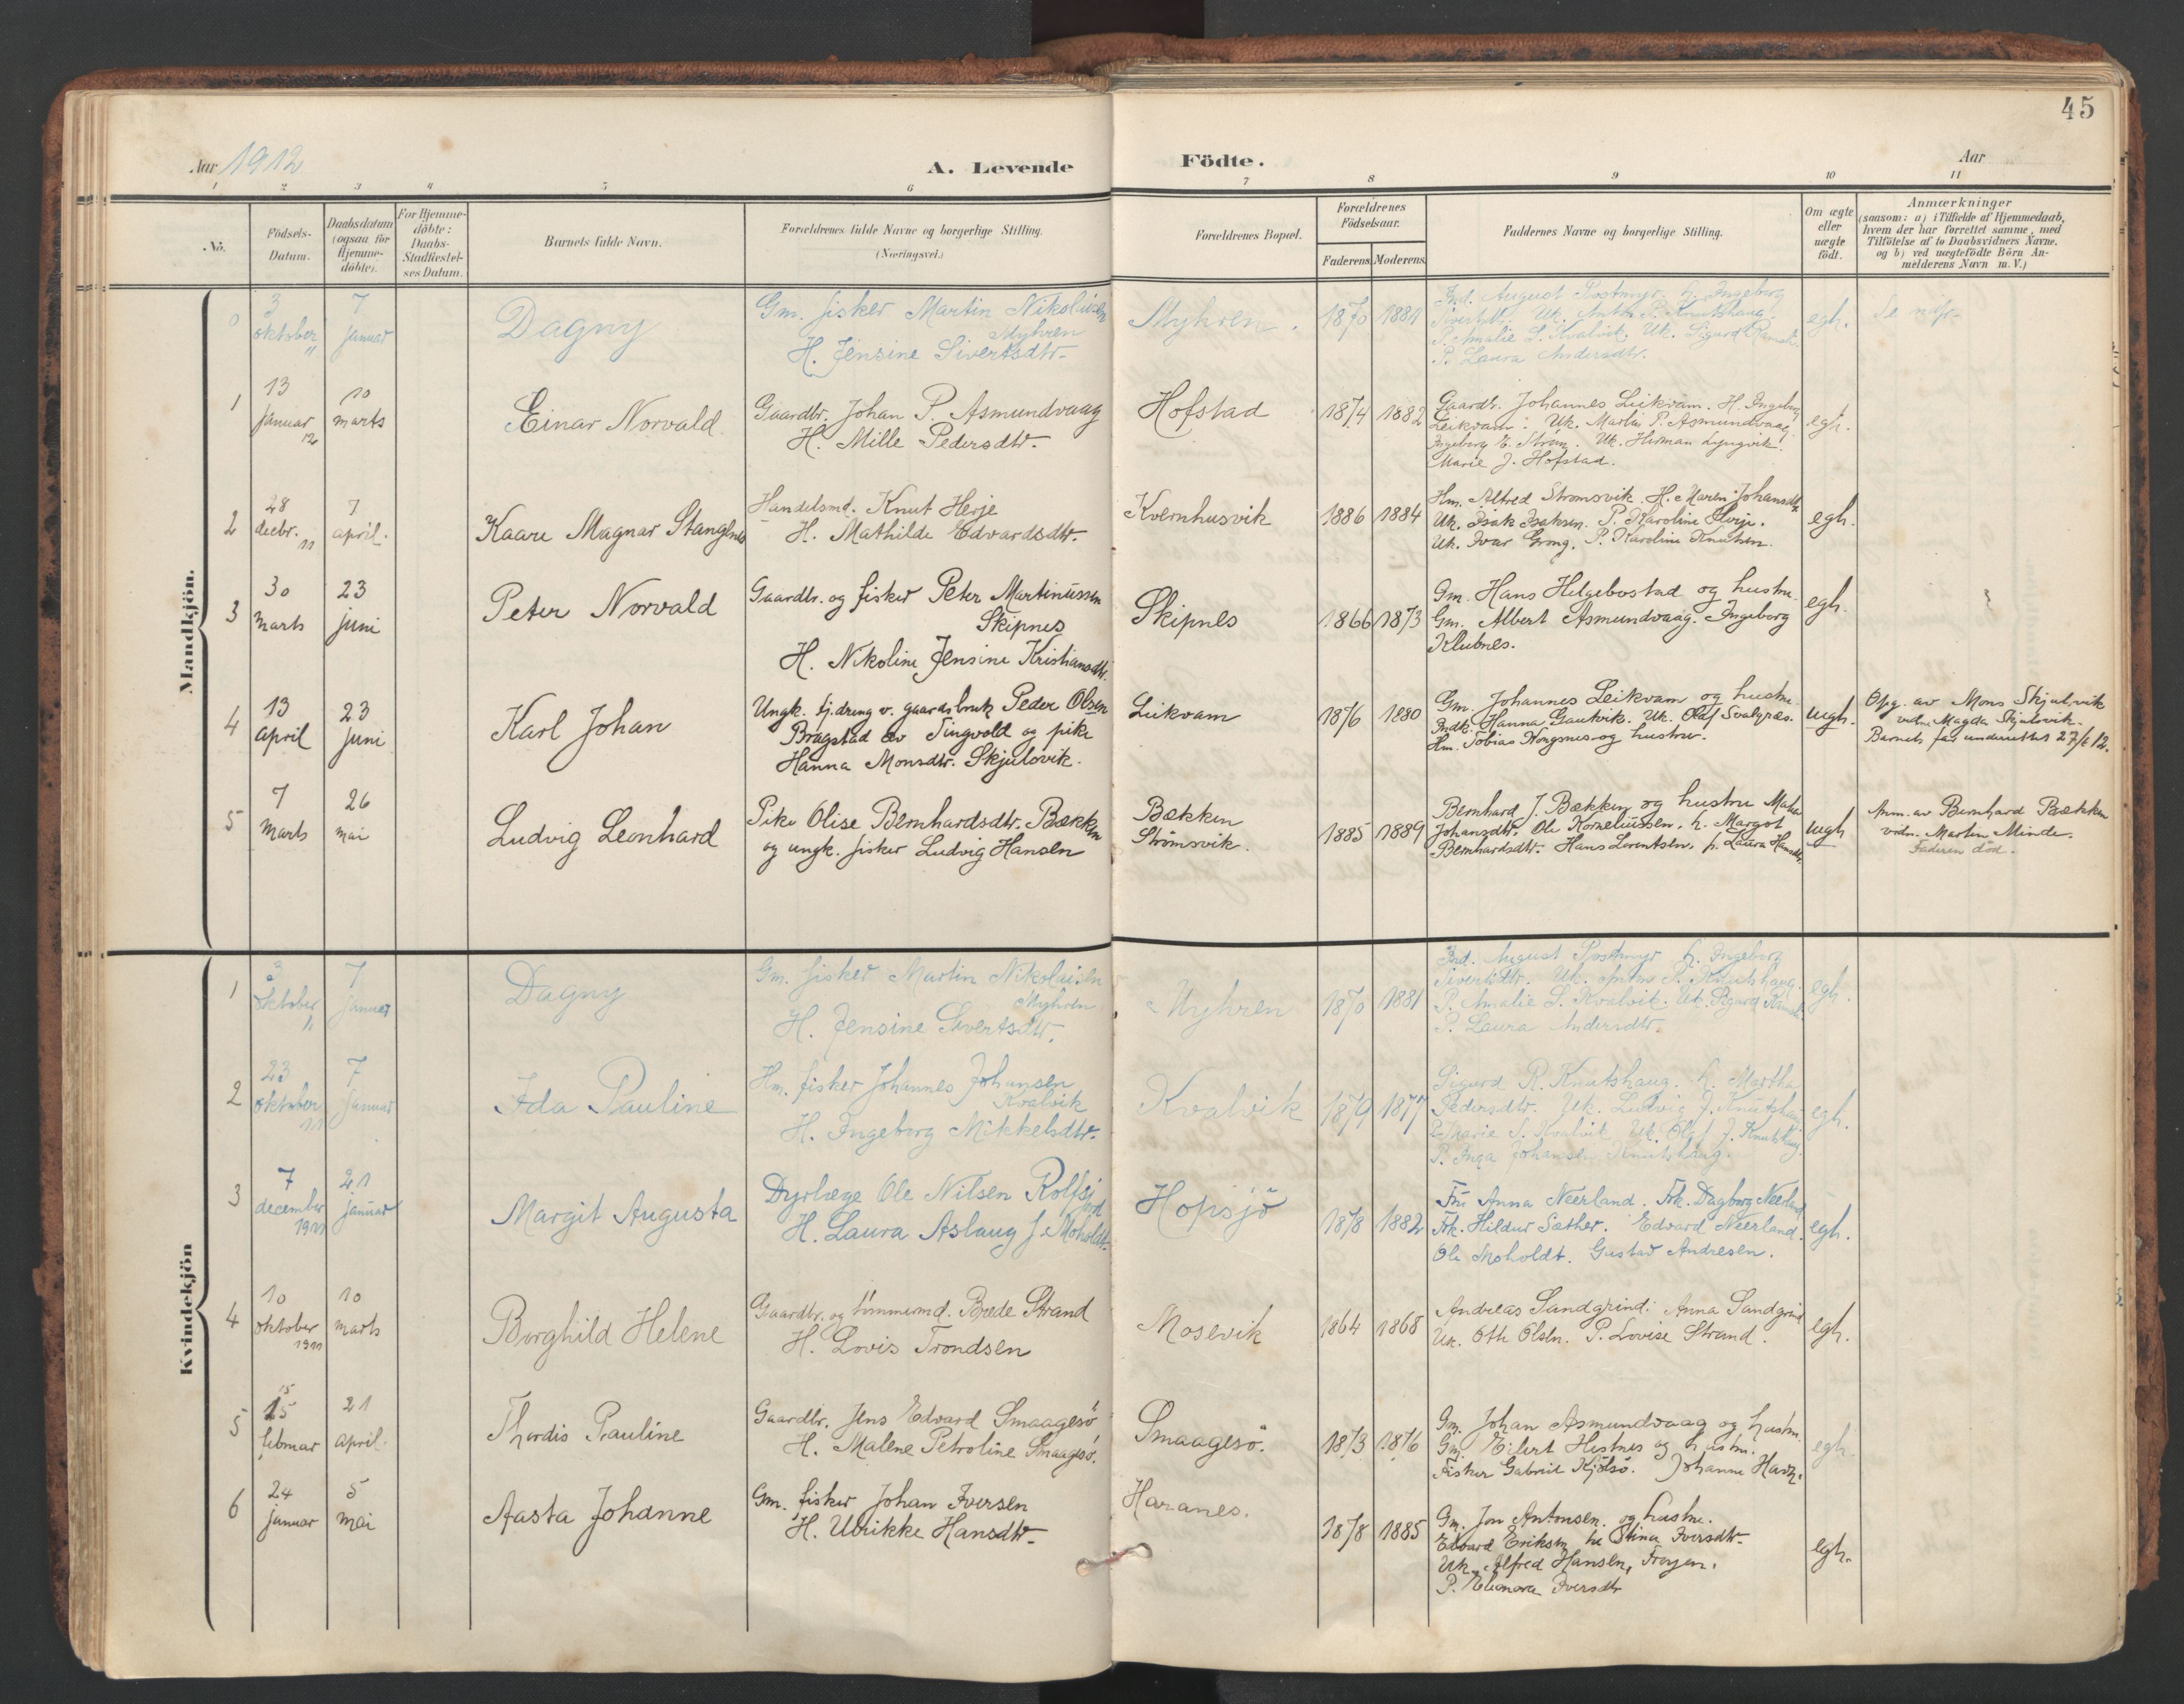 45
Aar 1912
A. Levende Födte.
Aar
1 2 3 4 5 6 7 8 9 10 11
No.
Födsels-
Datum.
Daabsdatum
(ogsaa for
Hjemme-
döbte).
For Hjemme-
döbte:
Daabs-
Stadfæstel-
ses Datum.
Barnets fulde Navn.
Forældrenes fulde Navne og borgerlige Stilling.
(Næringsvei.)
Forældrenes Bopæl.
Forældrenes
Födselsaar.
Faderens. Moderens.
Faddernes Navne og borgerlige Stilling.
Om ægte
eller
uægte
födt.
Anmærkninger
(saasom: a) i Tilfælde af Hjemmedaab,
hvem der har forrettet samme, med
Tilföielse af to Daabsvidners Navne.
og b) ved uægtefödte Börn An-
melderens Navn m. V.)
Mandkjön.
0
3
oktober
11
7
januar
Dagny
Gm. fisker Martin Nikolaisen
Myhren
H. Jensine Sivertsdtr.
Myhren.
1870 1881
Ind. August Postmyr. h. Ingeborg
Sivertsdtr. Uk. Anton P. Knutshaug.
P. Amalie S. Kvalvik. Uk. Sigurd
P. Laura Andersdtr.
egh.
Se
1
13
januar
12
10
marts
Einar Norvald
Gaardbr. Johan P. Asmundvaag
H. Mille Pedersdtr.
Hofstad
1874 1882
Gaardb. Johannes Leikvam. H. Ingeborg
Leikvam. Uk. Martin P. Asmundvaag.
Ingeborg E. Strøm. Uk. Herman Lyngvik.
Marie J. Hofstad.
egh.
2
28
decbr.
11
7
april.
Kaare Magnar Stanglnes
Handelsmd. Knut Herje
H. Mathilde Edvardsdtr.
Kvernhusvik
1886 1884
Hm. Alfred Strømsvik. H. Maren Johansdtr.
Uk. Isak Isaksen. P. Karoline Herje.
Uk. Ivar Grong. P. Karoline Knutsen.
egh.
3
30
marts
23
juni
Peter Norvald
Gaardbr. og fisker Peter Martinussen
Skipnes
H. Nikoline Jensine Kristiansdtr.
Skipnes
1866 1873
Gm. Hans Helgebostad og hustru.
Gm. Albert Asmundvaag. Ingeborg
Klubnes.
egh.
4
13
april
23
juni
Karl Johan
Ungk. tj.dreng v. gaardsbruk Peder Olsen
Bragstad av Tingvold og pike
Hanna Monsdtr. Skjulsvik.
Leikvam
1876 1880
Gm. Johannes Leikvam og hustru.
Hanna Gautvik. Uk. Olaf
Hm. Tobias og hustru.
uegh.
Opg. av Mons Skjulsvik
vidne Magda Skjulsvik.
Barnets far underrettet 27/6 12.
5
7
marts
26
mai
Ludvig Leonhard
Pike Olise Bernhardsdtr. Bækken
og ungk. fisker Ludvig Hansen
Bækken
Strømsvik.
1885 1889
Bernhard J. Bækken og hustru
Johansdtr. Ole Korneliussen, h. Margot
Bernhardsdtr. Hans Lorentsen, p. Laura Hansdtr.
uegh
Anm. av Bernhard Bækken
vidn. Martin Minde.
Faderen död.
Kvindekjön
1
3
oktober
11
7
januar
Dagny
Gm. fisker Martin Nikolaisen
Myhren
H. Jensine Sivertsdtr.
Myhren
1870 1881
Ind. August Postmyr h. Ingeborg
Sivertsdtr. Uk. Anton P. Knutshaug.
P. Amalie S. Kvalvik. Uk. Sigurd
P. Laura Andersdtr.
egh.
2
23
oktober
11
7
januar
Ida Pauline
Hm. fisker Johannes Johansen
Kvalvik
H. Ingeborg Mikkelsdtr.
Kvalvik
1879 1877
Sigurd R. Knutshaug. h. Martha
Pedersdtr. Uk. Ludvig J. Knutshaug
P. Marie S. Kvalvik. Uk. Olaf J. Knutshaug.
P. Inga Johansen Knutshaug.
egh.
3
7
december
1911
21
januar
Margit Augusta
Dyrlæge Ole Nilsen Rolfsjord
H. Laura Aslaug f. Moholdt.
Hopsjö
1878 1882
Fru Anna Neerland. Frk. Dagborg Neerland
Frk. Hildur Sæther. Edvard Neerland.
Ole Moholdt. Gustav Andresen.
egh.
4
10
oktober
1911
10
marts
Borghild Helene
Gaardbr. og tömmermd. Brede Strand
H. Lovis Trondsen
Mosevik
1864 1868
Andreas Sandgrind. Anna Sandgrind
Uk. Oth Olsen. P. Lovise Strand.
egh.
5
15
15
februar
21
april.
Thordis Pauline
Gaardbr. Jens Edvard Smaagesö
H. Malene Petroline Smaagesö.
Smaagesö.
1873 1876
Gm. Johan Asmundvaag og hustru.
Gm. Eilert Hestnes og hustru.
Fisker Gabriel Kjölsö. Johanne
egh.
6
24
januar
5
mai
Aasta Johanne
Gm. fisker Johan Iversen
H. Ulrikke Hansdtr.
Haranes.
1878 1885
Gm. Jon Antonsen og hustru.
Edvard Eriksen h. Stina Iversdtr.
Uk. Alfred Hansen, Frøyen.
P. Elenora Iversdtr
egh.